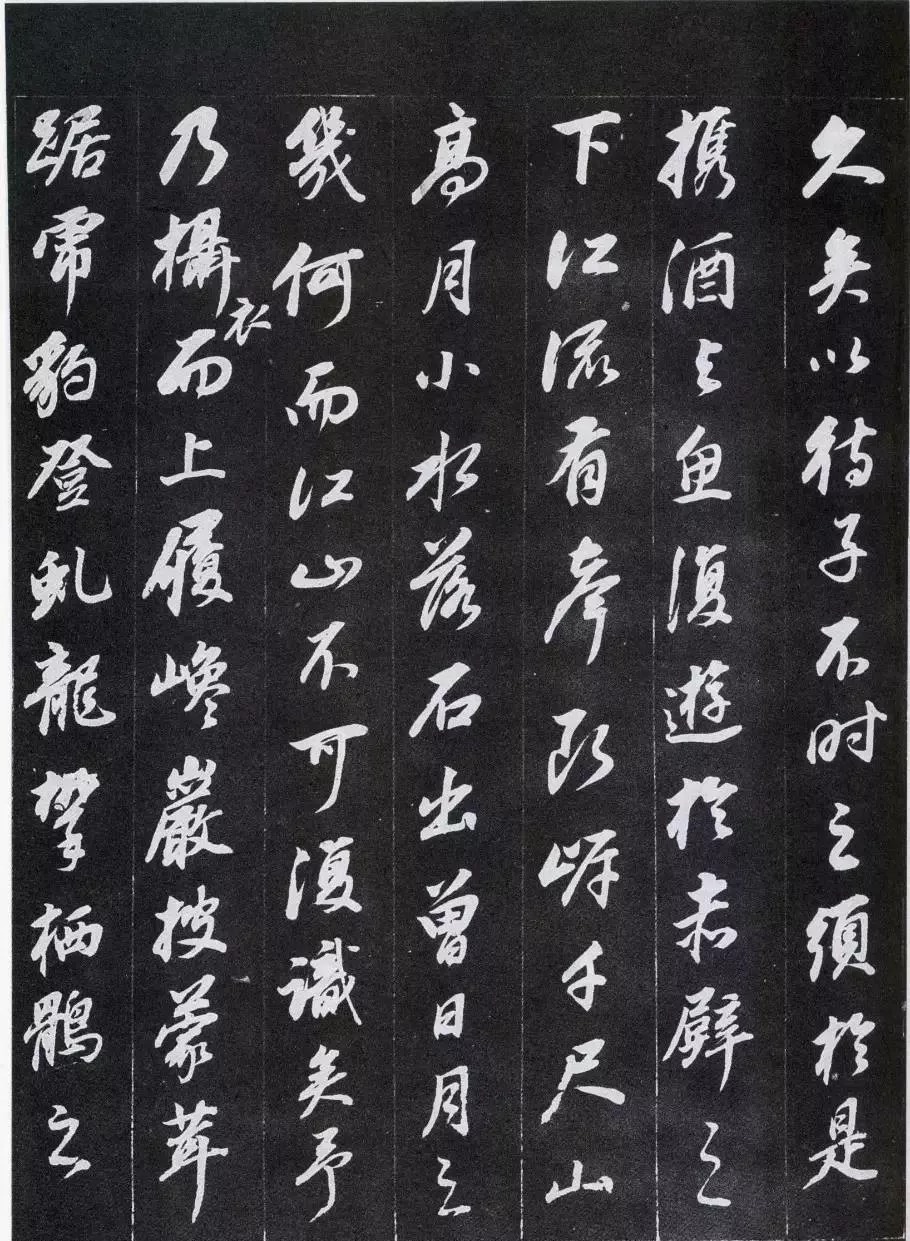 久矣以待子不时之須於是
携酒与魚復遊於赤壁之
下江流有聲断岸千尺山
高月小水落石出曾日月之
幾何而江山不可復識矣予
乃攝衣而上履巉巖披蒙茸
踞虎豹登虬龍攀栖鶻之